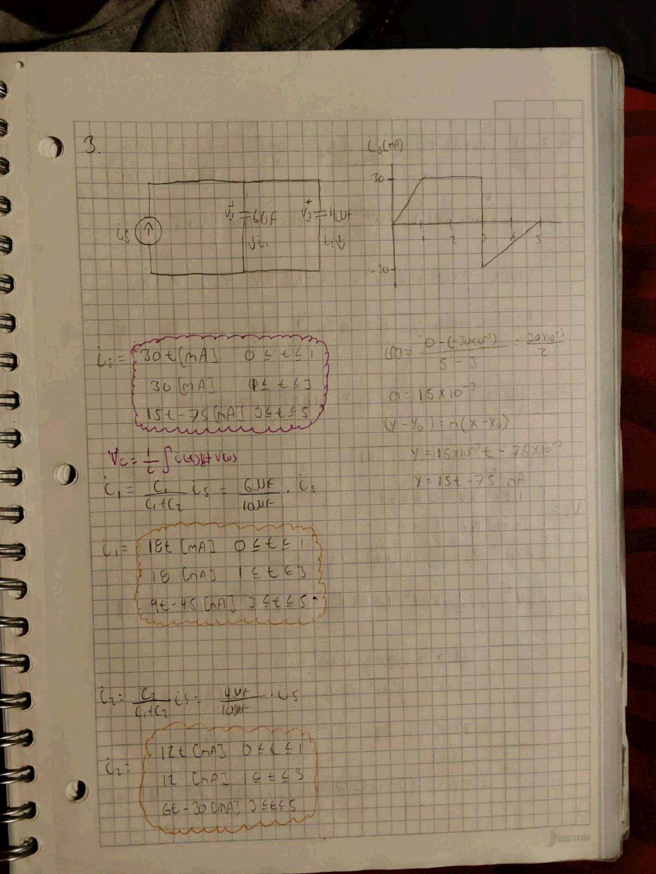 3.
is(mA)
30
-30
1 2 3 4 5
is
V1 + 6µF
↓i1
V2 + 4µF
i2↓
is = 30t [mA] 0 ≤ t ≤ 1
30 [mA] 1 ≤ t ≤ 3
15t-75 [mA] 3 ≤ t ≤ 5
m = 0-(-30x10⁻³) / 5-3 = 30x10⁻³ / 2
m = 15x10⁻³
(y-y₀) = m(x-x₀)
y = 15x10⁻³t - 75x10⁻³
y = 15t-75 mA
Vc = 1/C ∫ i(t)dt + v(0)
i1 = C1/C1+C2 is = 6µF/10µF · is
i1 = 18t [mA] 0 ≤ t ≤ 1
18 [mA] 1 ≤ t ≤ 3
9t-45 [mA] 3 ≤ t ≤ 5
i2 = C2/C1+C2 is = 4µF/10µF · is
i2 = 12t [mA] 0 ≤ t ≤ 1
12 [mA] 1 ≤ t ≤ 3
6t-30 [mA] 3 ≤ t ≤ 5
Norma